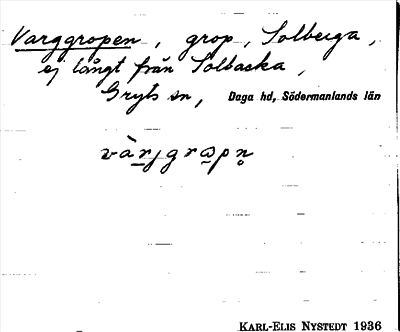 Varggropen, grop, Solberga,
ej långt från Solbacka,
Gryts sn, Daga hd, Södermanlands län
KARL-ELIS NYSTEDT 1936